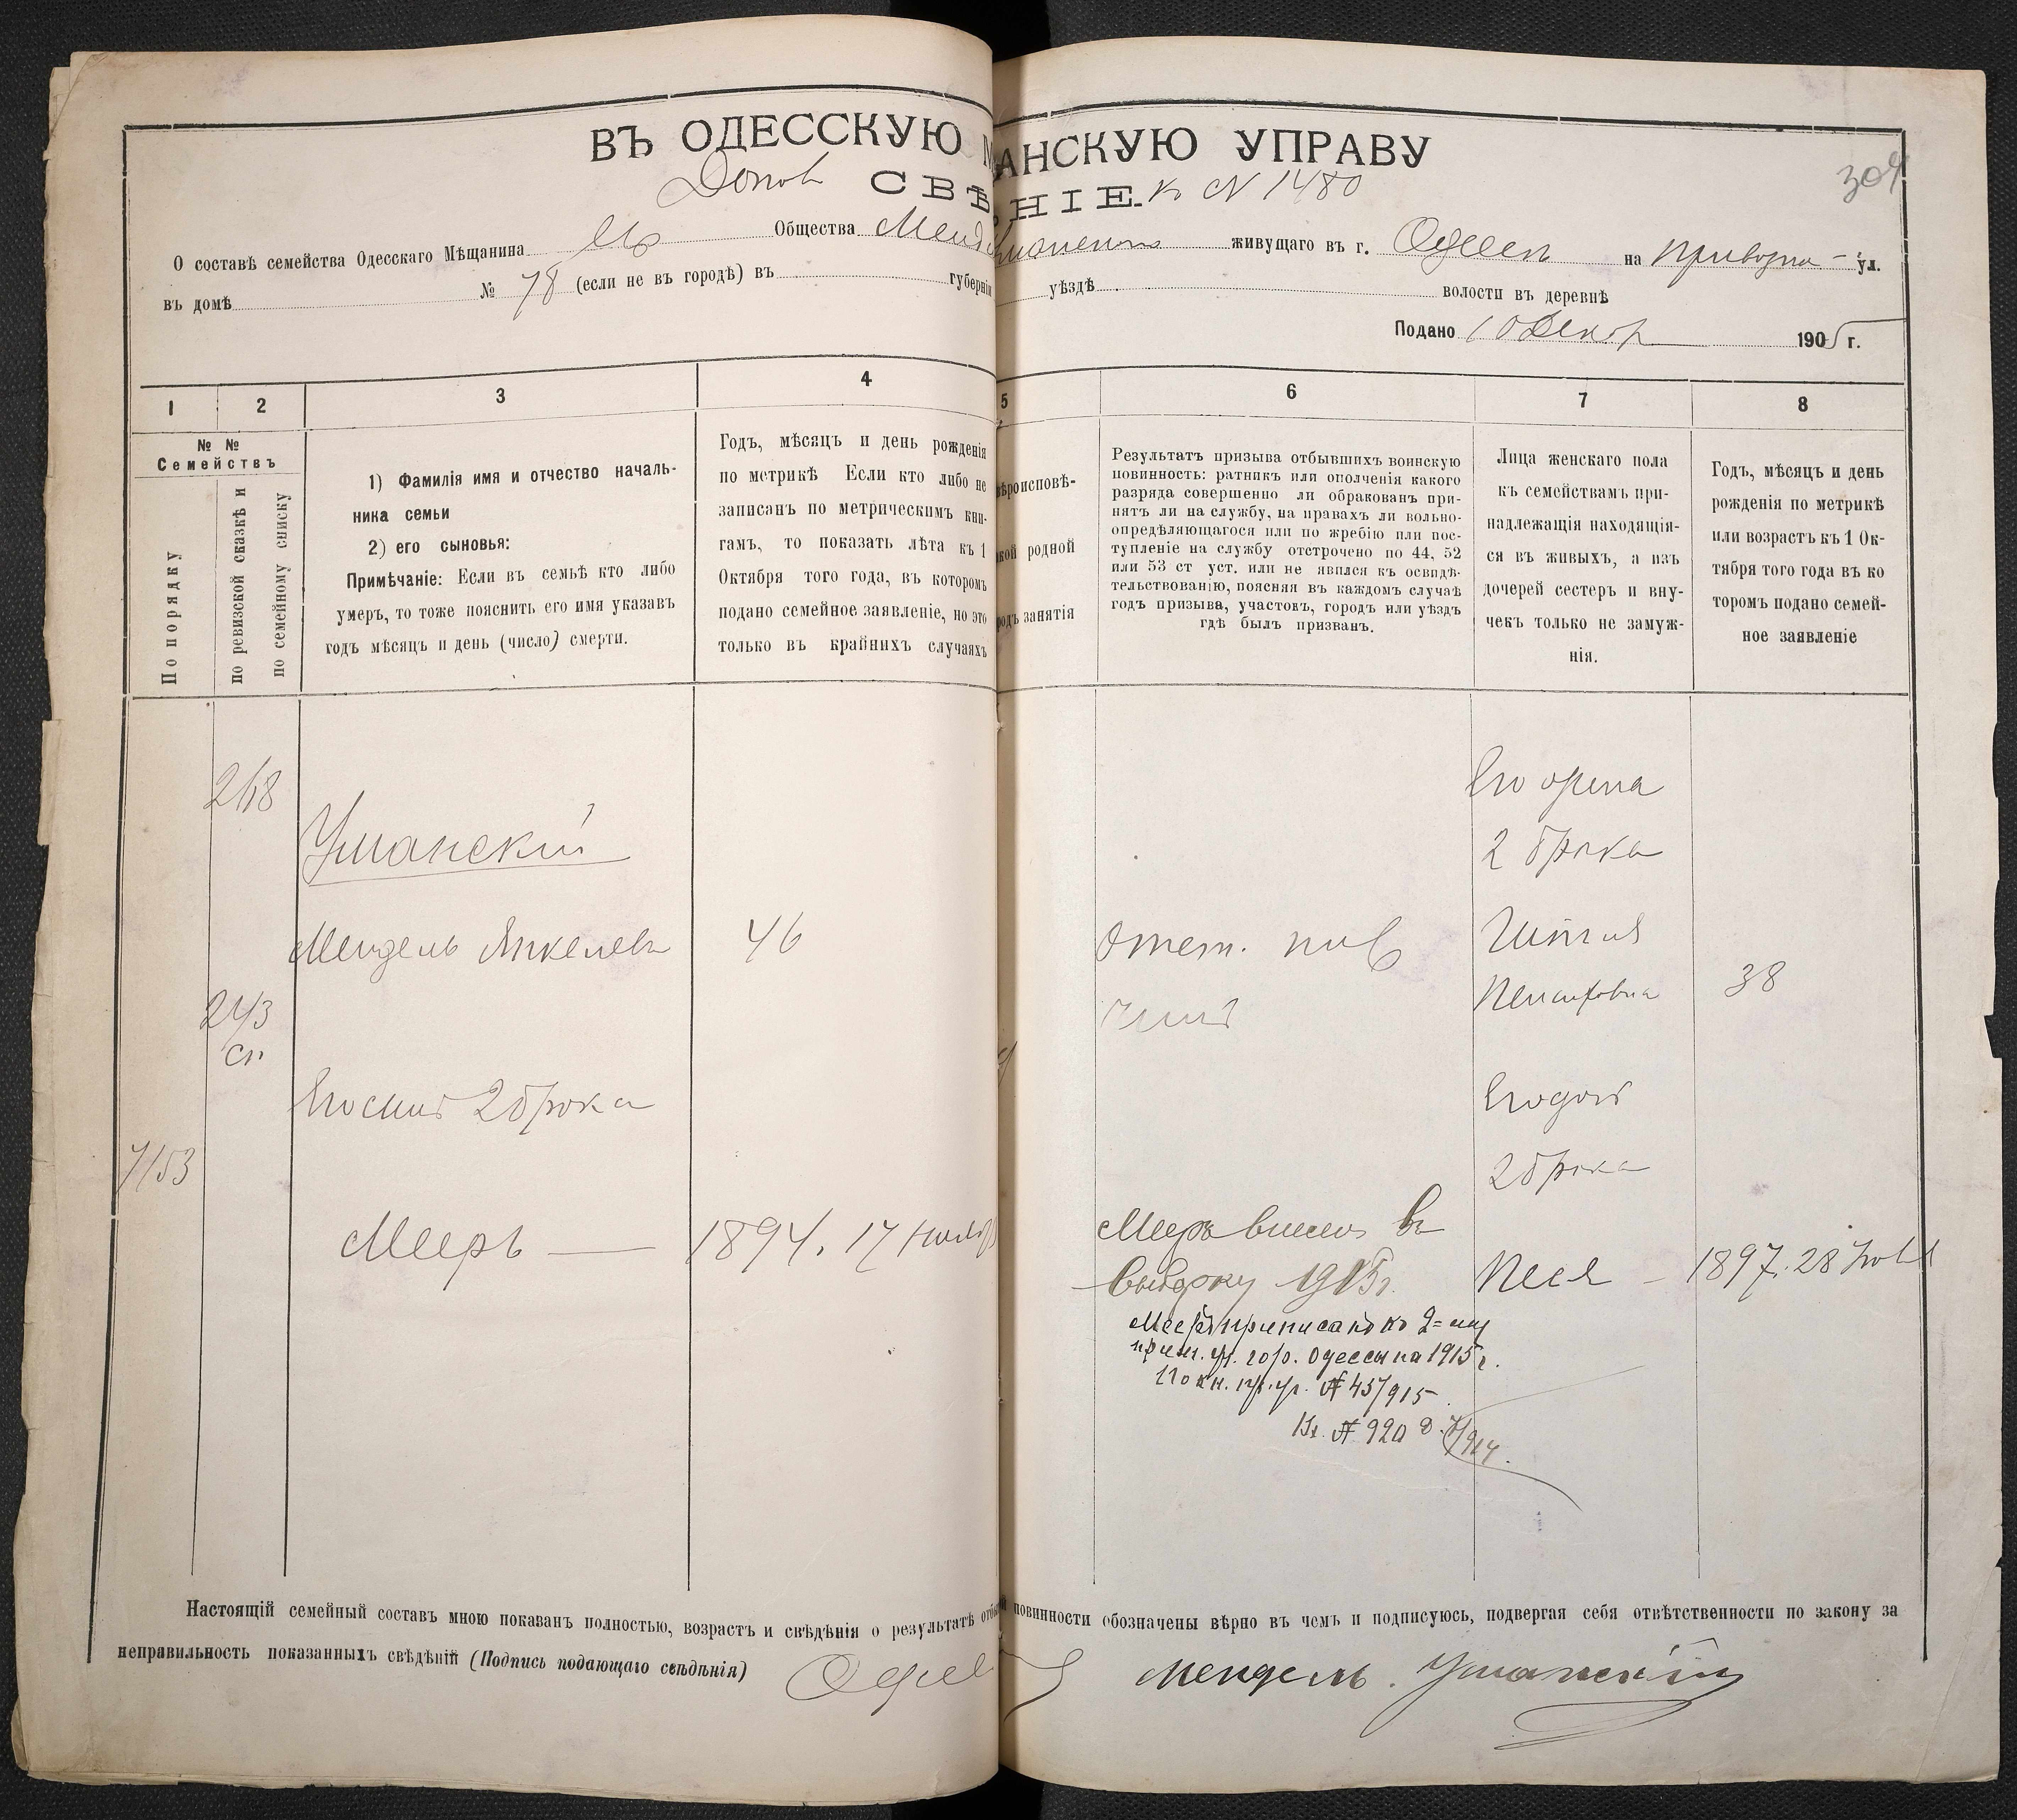 304
ВЪ ОДЕССКУЮ М АНСКУЮ УПРАВУ
Допов СВѢ НІЕ. к N 1480
О составѣ семейства Одесскаго Мѣщанина Евр Общества Менд живущаго въ г. Одессѣ на Привозна- ул.
въ домѣ № 78 (если не въ городѣ) въ губерніи уѣздѣ волости въ деревнѣ
Подано 10 Декбр 1905 г.
1 2 3 4 5 6 7 8
№ №
Семействъ
По порядку
по ревизской сказкѣ и
по семейному списку
1) Фамилія имя и отчество началь-
ника семьи
2) его сыновья:
Примѣчаніе: Если въ семьѣ кто либо
умеръ, то тоже пояснить его имя указавъ
годъ мѣсяцъ и день (число) смерти.
Годъ, мѣсяцъ и день рожденія
по метрикѣ Если кто либо не
записанъ по метрическимъ кни-
гамъ, то показать лѣта къ 1
Октября того года, въ которомъ
подано семейное заявленіе, но это
только въ крайнихъ случаяхъ
ѣроисповѣ-
кой родной
родъ занятія
Результатъ призыва отбывшихъ воинскую
повинность: ратникъ или ополченія какого
разряда совершенно ли обракованъ при-
нятъ ли на службу, на правахъ ли вольно-
опредѣляющагося или по жребію или пос-
тупленіе на службу отстрочено по 44, 52
или 53 ст уст. или не явился къ освидѣ-
тельствованію, поясняя въ каждомъ случаѣ
годъ призыва, участокъ, городъ или уѣздъ
гдѣ былъ призванъ.
Лица женскаго пола
къ семействамъ при-
надлежащія находящія-
ся въ живыхъ, а изъ
дочерей сестеръ и вну-
чекъ только не замуж-
нія.
Годъ, мѣсяцъ и день
рожденія по метрикѣ
или возрастъ къ 1 Ок-
тября того года въ ко
торомъ подано семей-
ное заявленіе
268
Уманскій
Мендель Янкелевъ 46
243
сп.
Его сынъ 2 брака
7153
Мееръ — 1894. 17 Ноябр
Отст. ниж
чинъ
Меер внесен въ
выборку 1915 г.
Мееръ приписанъ ко 2=му
приз. уч. гор. Одессы на 1915 г.
по кн. пр. уч. № 45/915
Вх. № 920
Его жена
2 брака
38
Его доч
2 брака
Песя — 1897. 28
Настоящій семейный составъ мною показанъ полностью, возрастъ и свѣдѣнія о результатѣ отбы повинности обозначены вѣрно въ чемъ и подписуюсь, подвергая себя отвѣтственности по закону за
неправильность показанныхъ свѣдѣній (Подпись подающаго свѣдѣнія) Мендель Уманскій